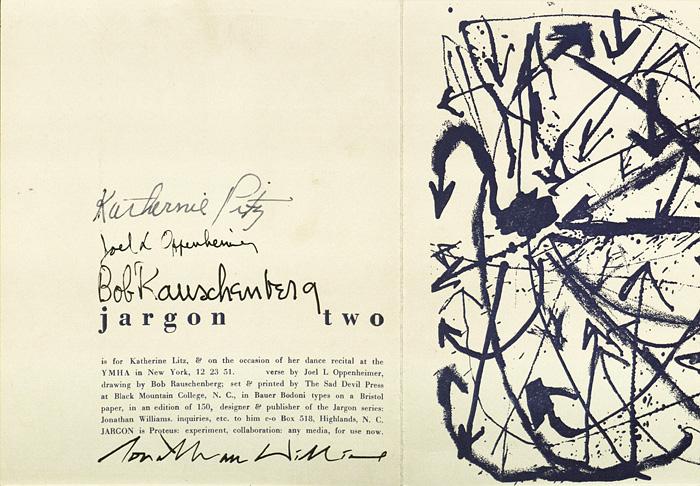 Katherine Litz
Joel L Oppenheimer
Bob Rauschenberg
jargon two
is for Katherine Litz, & on the occasion of her dance recital at the
YMHA in New York, 12 23 51. verse by Joel L Oppenheimer,
drawing by Bob Rauschenberg; set & printed by The Sad Devil Press
at Black Mountain College, N. C., in Bauer Bodoni types on a Bristol
paper, in an edition of 150, designer & publisher of the Jargon series:
Jonathan Williams. inquiries, etc. to him c-o Box 518, Highlands, N. C.
JARGON is Proteus: experiment, collaboration: any media, for use now.
Jonathan Williams